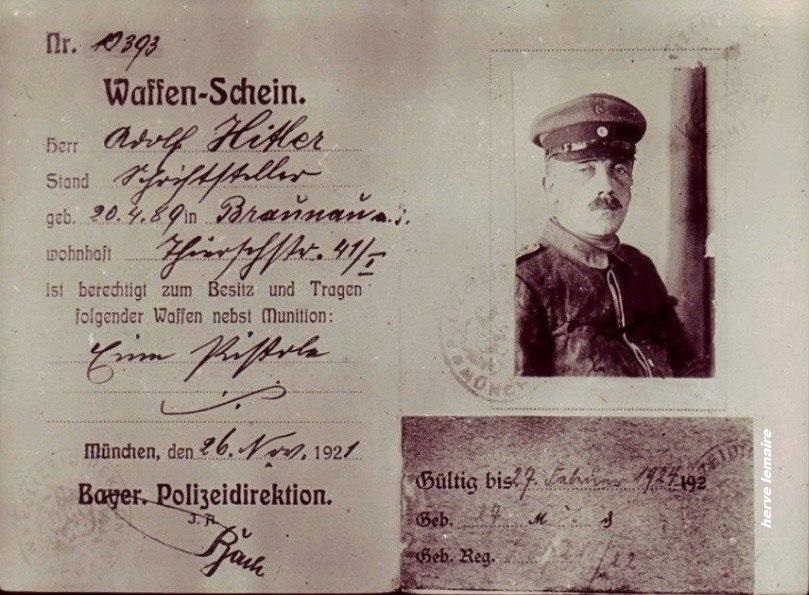 Nr. 10393
Waffen-Schein.
Herr Adolf Hitler
Stand Schriftsteller
geb. 20.4.89 in Braunau a. I.
wohnhaft Thierschstr. 41/I
ist berechtigt zum Besitz und Tragen
folgender Waffen nebst Munition:
Eine Pistole
München, den 26. Nov. 1921
Bayer. Polizeidirektion.
J. A.
MÜNC
Gültig bis 27. Februar 1924 192
Geb.
Geb. Reg.
herve lemaire